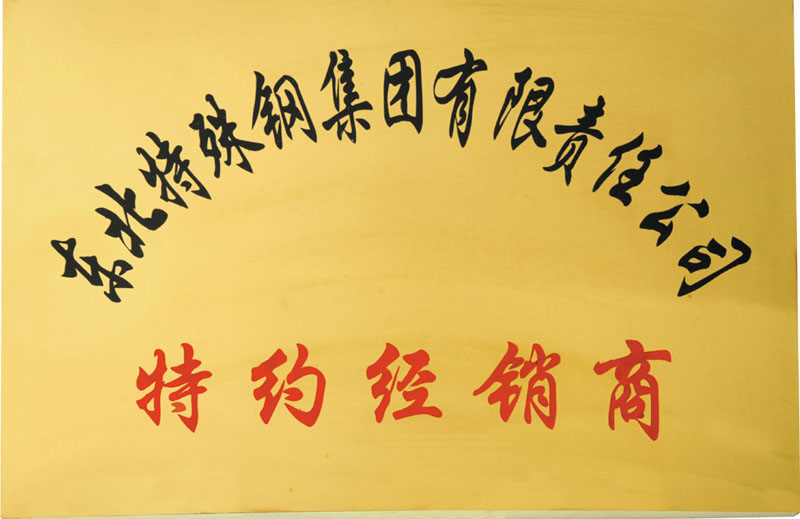 东北特殊钢集团有限责任公司
特约经销商